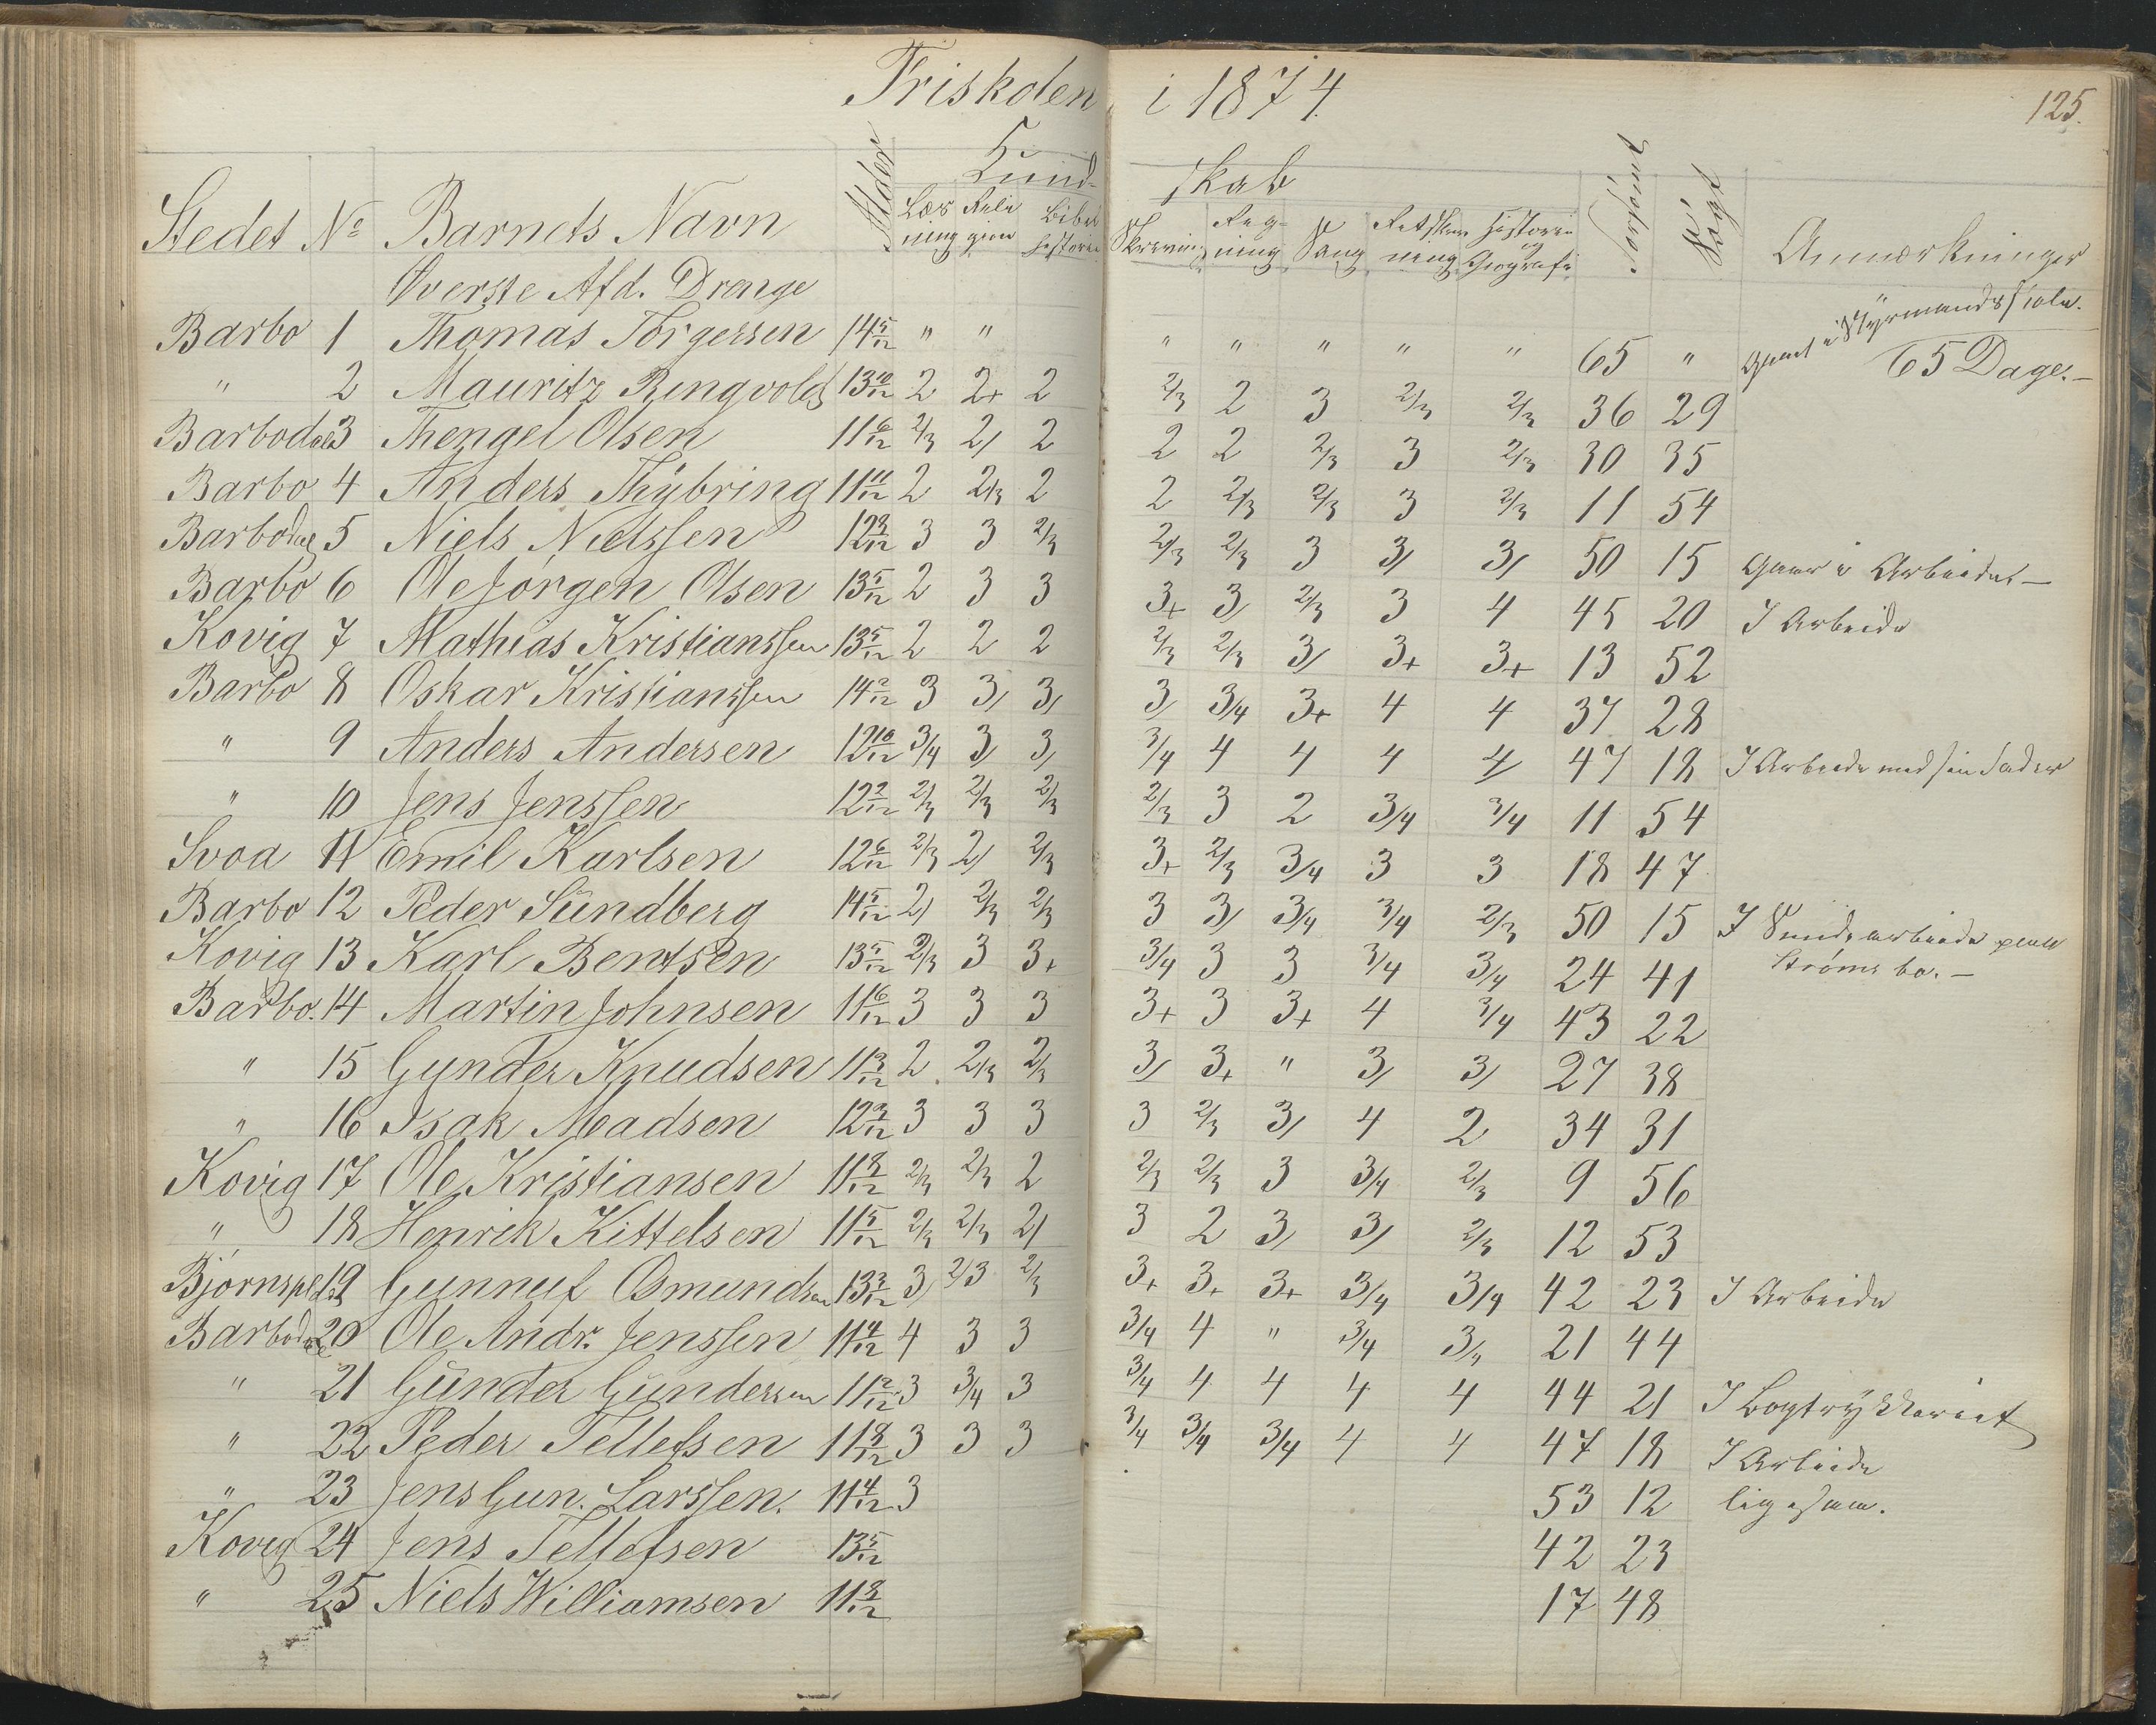 Friskolen i 1874
125.
Stedet No Barnets Navn Alder Kund- skab Forsømt Søgt Anmærkninger
Læsning Religion Bibelhistorie Skrivning Regning Sang Retskrivning Historie og Geografi
Øverste Afd. Drenge
Barbo 1 Thomas Torgersen 14 5/12 " " " " " " " 65 " Gaaet i Styrmandsskole.
65 Dage.-
" 2 Mauritz Ringvold 13 10/12 2 2+ 2 2/3 2 3 2/3 2/3 36 29
Barbodal 3 Thengel Olsen 11 6/12 2/3 2/ 2 2 2 2/3 3 2/3 30 35
Barbo 4 Anders Thybring 11 11/12 2 2/3 2 2 2/3 2/3 3 2/3 11 54
Barbodal 5 Niels Nielssen 12 9/12 3 3 2/3 2/3 2/3 3 3/ 3/ 50 15 Gaar i Arbeide.-
Barbo 6 Ole Jørgen Olsen 13 5/12 2 3 3 3+ 3/ 2/3 3 4 45 20 I Arbeide
Kovig 7 Mathias Kristianssen 13 5/12 2 2 2 2/3 2/3 3/ 3+ 3+ 13 52
Barbo 8 Oskar Kristianssen 14 2/12 3 3/ 3/ 3/ 3/4 3+ 4 4 37 28
" 9 Anders Andersen 12 10/12 3/4 3/ 3/ 3/4 4 4 4 4/ 47 18 I Arbeide med sin Fader
" 10 Jens Jenssen 12 2/12 2/3 2/3 2/3 2/3 3 2 3/4 3/4 11 54
Svoa 11 Emil Karlsen 12 6/12 2/3 2/ 2/3 3+ 2/3 3/4 3 3 18 47
Barbo 12 Peder Sundberg 14 5/12 2/ 2/3 2/3 3 3/ 3/4 3/4 2/3 50 15 I arbeide paa
Kovig 13 Karl Bentsen 13 5/12 2/3 3 3+ 3/4 3 3 3/4 3/4 24 41 Strømsbo.-
Barbo. 14 Martin Johnsen 11 6/12 3 3 3 3+ 3 3+ 4 3/4 43 22
" 15 Gunder Knudsen 11 3/12 2 2/3 2/3 3/ 3+ " 3/ 3/ 27 38
" 16 Isak Madsen 12 3/12 3 3 3 3 2/3 3/ 4 2 34 31
Kovig 17 Ole Kristiansen 11 8/12 2/3 2/3 2 2/3 2/3 3 3/4 2/3 9 56
" 18 Henrik Kittelsen 11 5/12 2/3 2/3 2/ 3 2 3/ 3/ 2/3 12 53
19 Gunnuf Osmundsen 13 3/12 3/ 2/3 2/3 3+ 3+ 3+ 3/4 3/4 42 23 I Arbeide
Barbodal 20 Ole Andr. Jenssen 11 4/12 4 3 3 3/4 4 " 3/4 3/4 21 44
" 21 Gunder Gundersen 11 2/12 3 3/4 3 3/4 4 4 4 4 44 21 I Bogtrykkeriet
" 22 Peder Tellefsen 11 8/12 3 3 3 3/4 3/4 3/4 4 4 47 18 I Arbeide
" 23 Jens Gun. Larssen. 11 4/12 3 53 12 ligesaa.
Kovig 24 Jens Tellefsen 13 5/12 42 23
" 25 Niels Williamsen 11 8/12 17 48